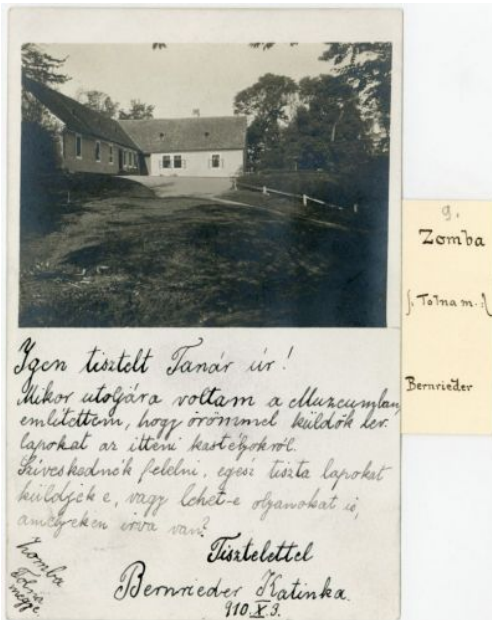 Igen tisztelt Tanár úr!
Mikor utoljára voltam a Muzeumban,
említettem, hogy örömmel küldök lev.
lapokat az itteni kastélyokról.
Szíveskednék felelni, egész tiszta lapokat
küldjek e, vagy lehet-e olyanokat is,
amelyeken írva van?
Tisztelettel
Bernrieder Katinka.
910.X.9.
Zomba
Tolna
megye.
9.
Zomba
Tolna m.
Bernrieder